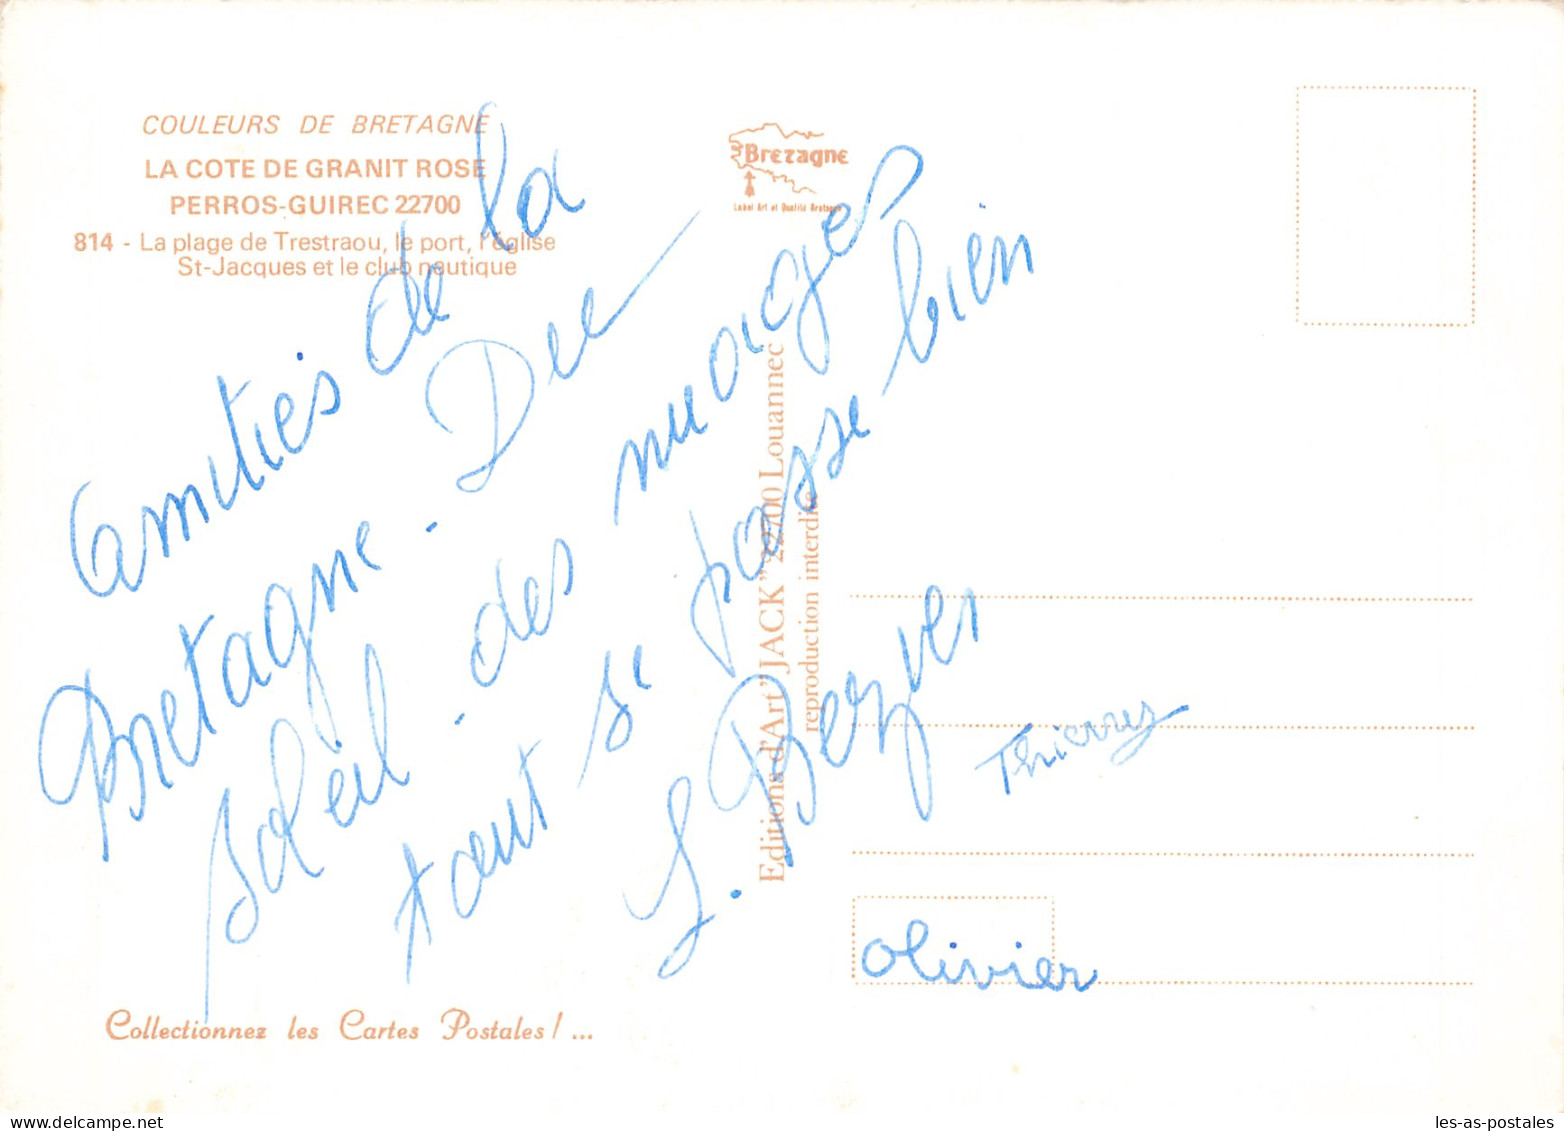 COULEURS DE BRETAGNE
LA COTE DE GRANIT ROSE
PERROS-GUIREC 22700
814 - La plage de Trestraou, le port, l'église
St-Jacques et le club nautique
Bretagne
Label Art et Qualité Bretagne
Amitiés de la
Bretagne - Du
soleil - des nuages
tout se passe bien
Thierry
Olivier
Editions d'Art "JACK" 22700 Louannec
reproduction interdite
Collectionnez les Cartes Postales ! ...
les-as-postales